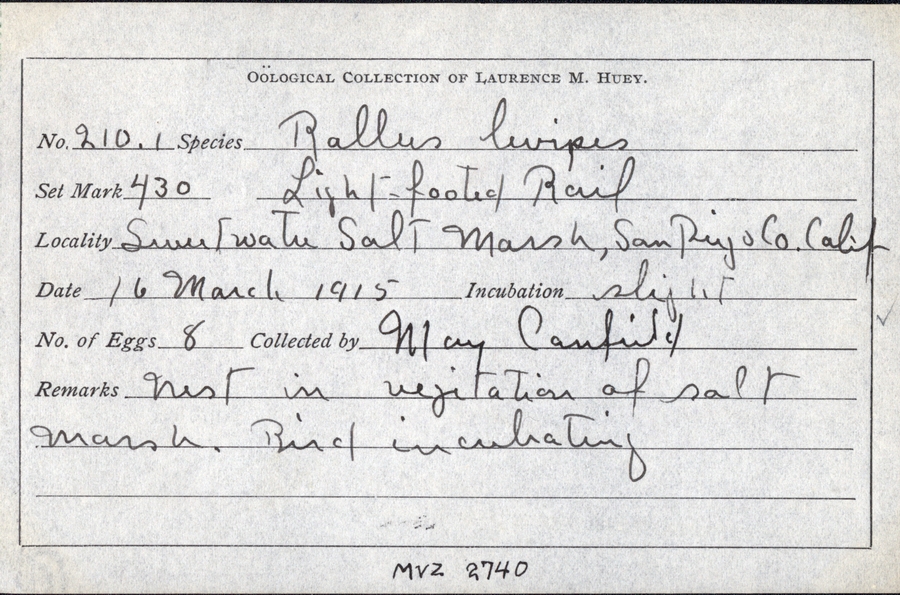 OÖLOGICAL COLLECTION OF LAURENCE M. HUEY.
No. 210.1 Species Rallus levipes
Set Mark 430 Light-footed Rail
Locality Sweetwater Salt Marsh, San Diego Co. Calif
Date 16 March 1915 Incubation slight
No. of Eggs 8 Collected by May Canfield
Remarks Nest in vegitation of salt
marsh. Bird incubating
MVZ 2740